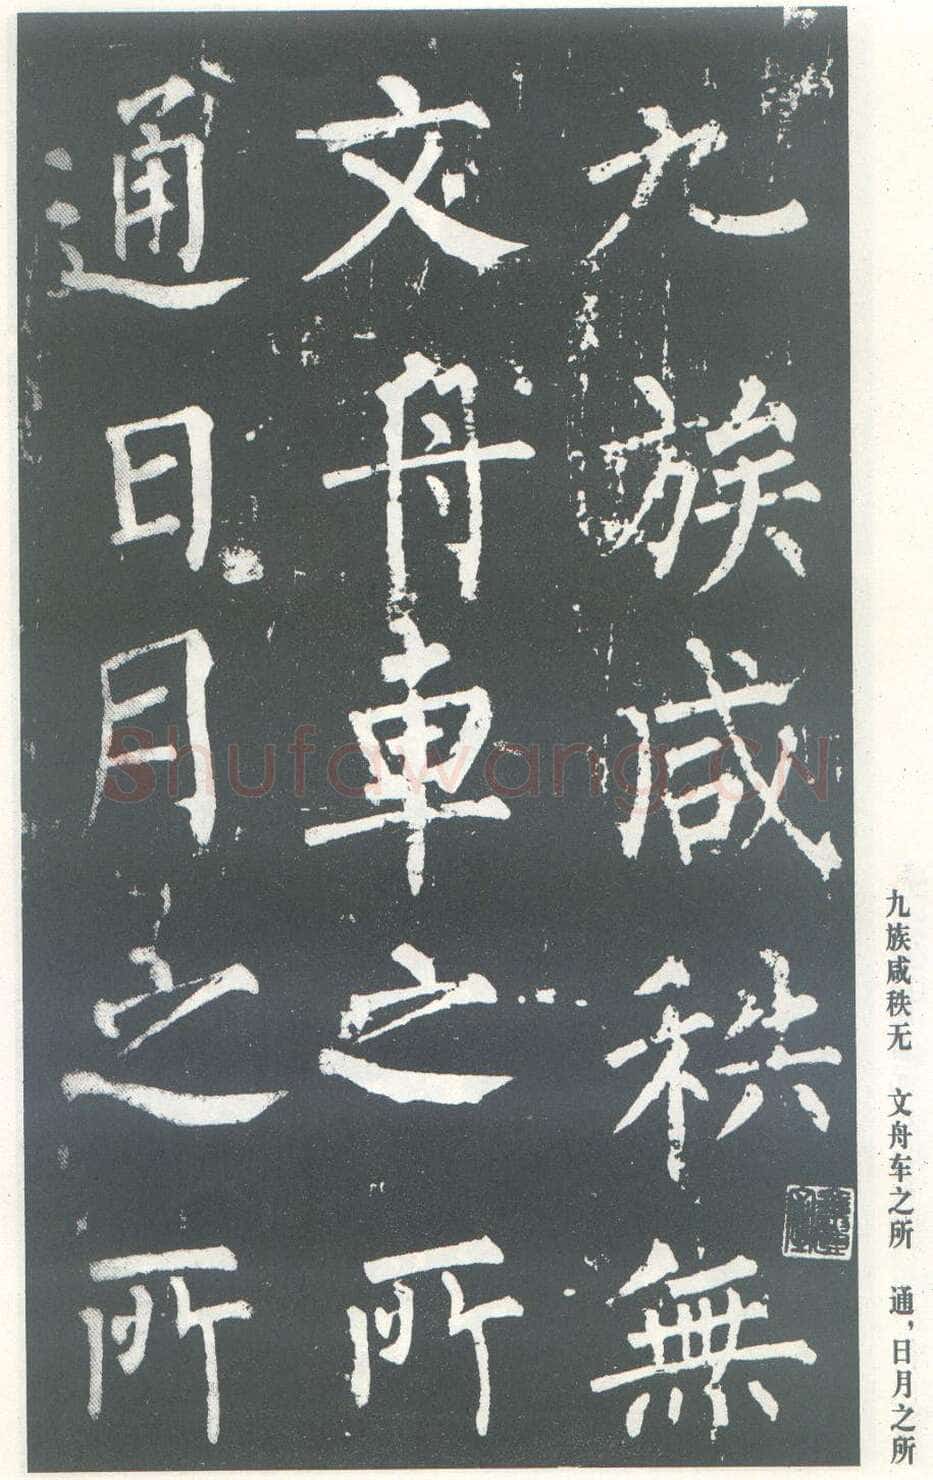 九族咸秩無
文舟車之所
通日月之所
九族咸秩无 文舟车之所 通，日月之所
shufawang.CN